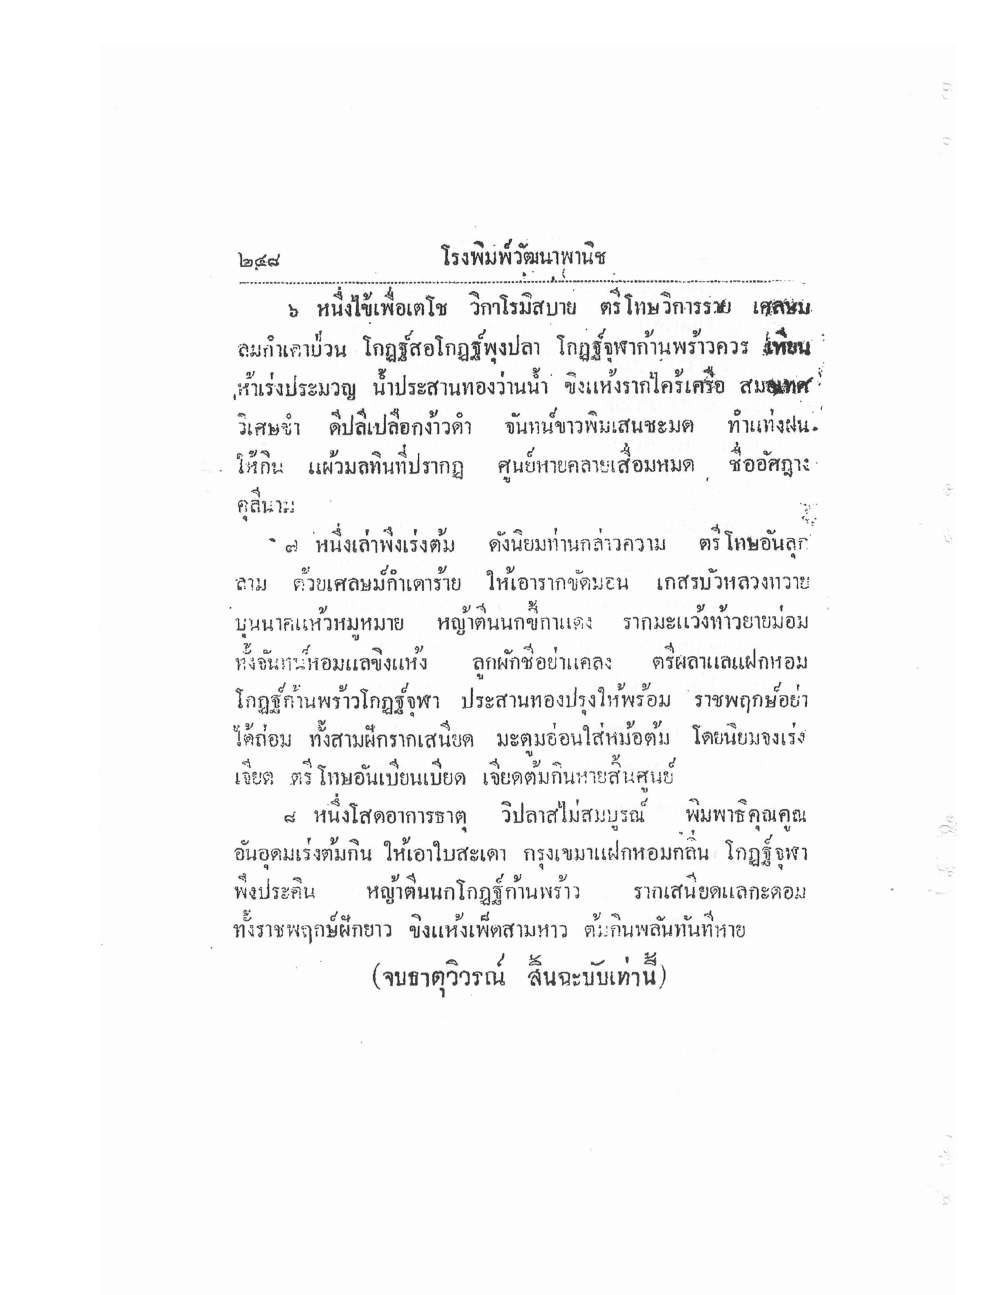 ๒๔๘ โรงพิมพ์วัฒนาพานิช
๖ หนึ่งไข้เพื่อเตโช วิกาโรมิสบาย ตรีโทษวิการราย เศลษม
ลมกำเดาป่วน โกฏฐ์สอโกฏฐ์พุงปลา โกฏฐ์จุฬาก้านพร้าวควร เทียน
ห้าเร่งประมวญ น้ำประสานทองว่านน้ำ ขิงแห้งรากไคร้เครือ สมอเทศ
วิเศษขำ ดีปลีเปลือกง้าวดำ จันทน์ขาวพิมเสนชะมด ทำแท่งฝน
ให้กิน แผ้วมลทินที่ปรากฏ ศูนย์หายคลายเสื่อมหมด ชื่ออัศฎาง
คุลีนาม
๗ หนึ่งเล่าพึงเร่งต้ม ดังนิยมท่านกล่าวความ ตรีโทษอันลุก
ลาม ด้วยเศลษม์กำเดาร้าย ให้เอารากขัดมอน เกสรบัวหลวงทวาย
บุนนาคแห้วหมูหมาย หญ้าตีนนกขี้กาแดง รากมะแว้งท้าวยายม่อม
ทั้งจันทน์หอมแลขิงแห้ง ลูกผักชีอย่าแคลง ตรีผลาแลแฝกหอม
โกฏฐ์ก้านพร้าวโกฏฐ์จุฬา ประสานทองปรุงให้พร้อม ราชพฤกษ์อย่า
ได้ถ่อม ทั้งสามฝักรากเสนียด มะตูมอ่อนใส่หม้อต้ม โดยนิยมจงเร่ง
เจียด ตรีโทษอันเบียนเบียด เจียดต้มกินหายสิ้นศูนย์
๘ หนึ่งโสดอาการธาตุ วิปลาสไม่สมบูรณ์ พิมพาธิคุณคูณ
อันอุดมเร่งต้มกิน ให้เอาใบสะเดา กรุงเขมาแฝกหอมกลิ่น โกฏฐ์จุฬา
พึงประคิน หญ้าตีนนกโกฏฐ์ก้านพร้าว รากเสนียดแลกะดอม
ทั้งราชพฤกษ์ฝักยาว ขิงแห้งเพ็ดสามหาว ต้มกินพลันทันที่หาย
(จบธาตุวิวรณ์ สิ้นฉะบับเท่านี้)